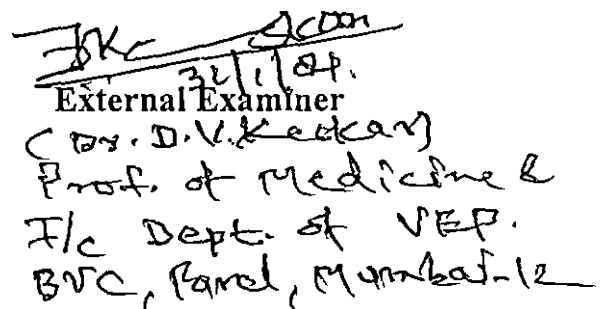 31/1/04.
External Examiner
(Dr. D.V. Keskar)
Prof. of Medicine &
I/c Dept. of VEP.
BVC, Parel, Mumbai-12